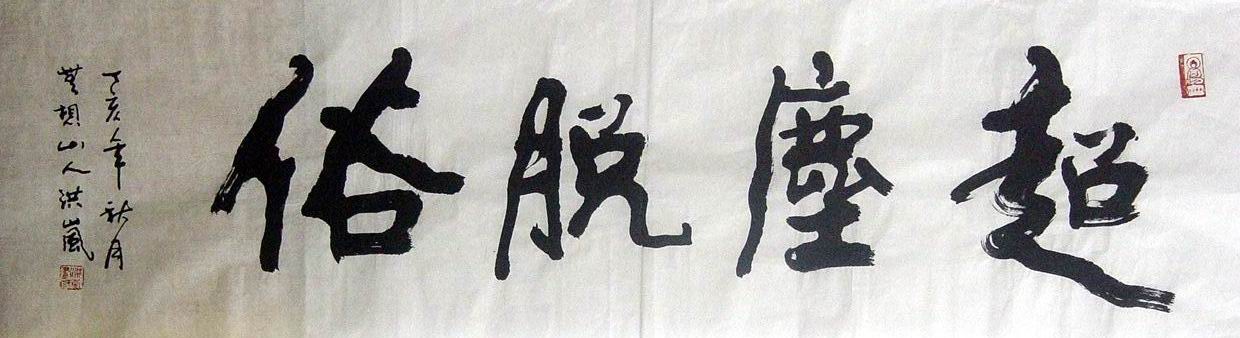 超塵脫俗
丁亥年秋月
無想山人洪嵐